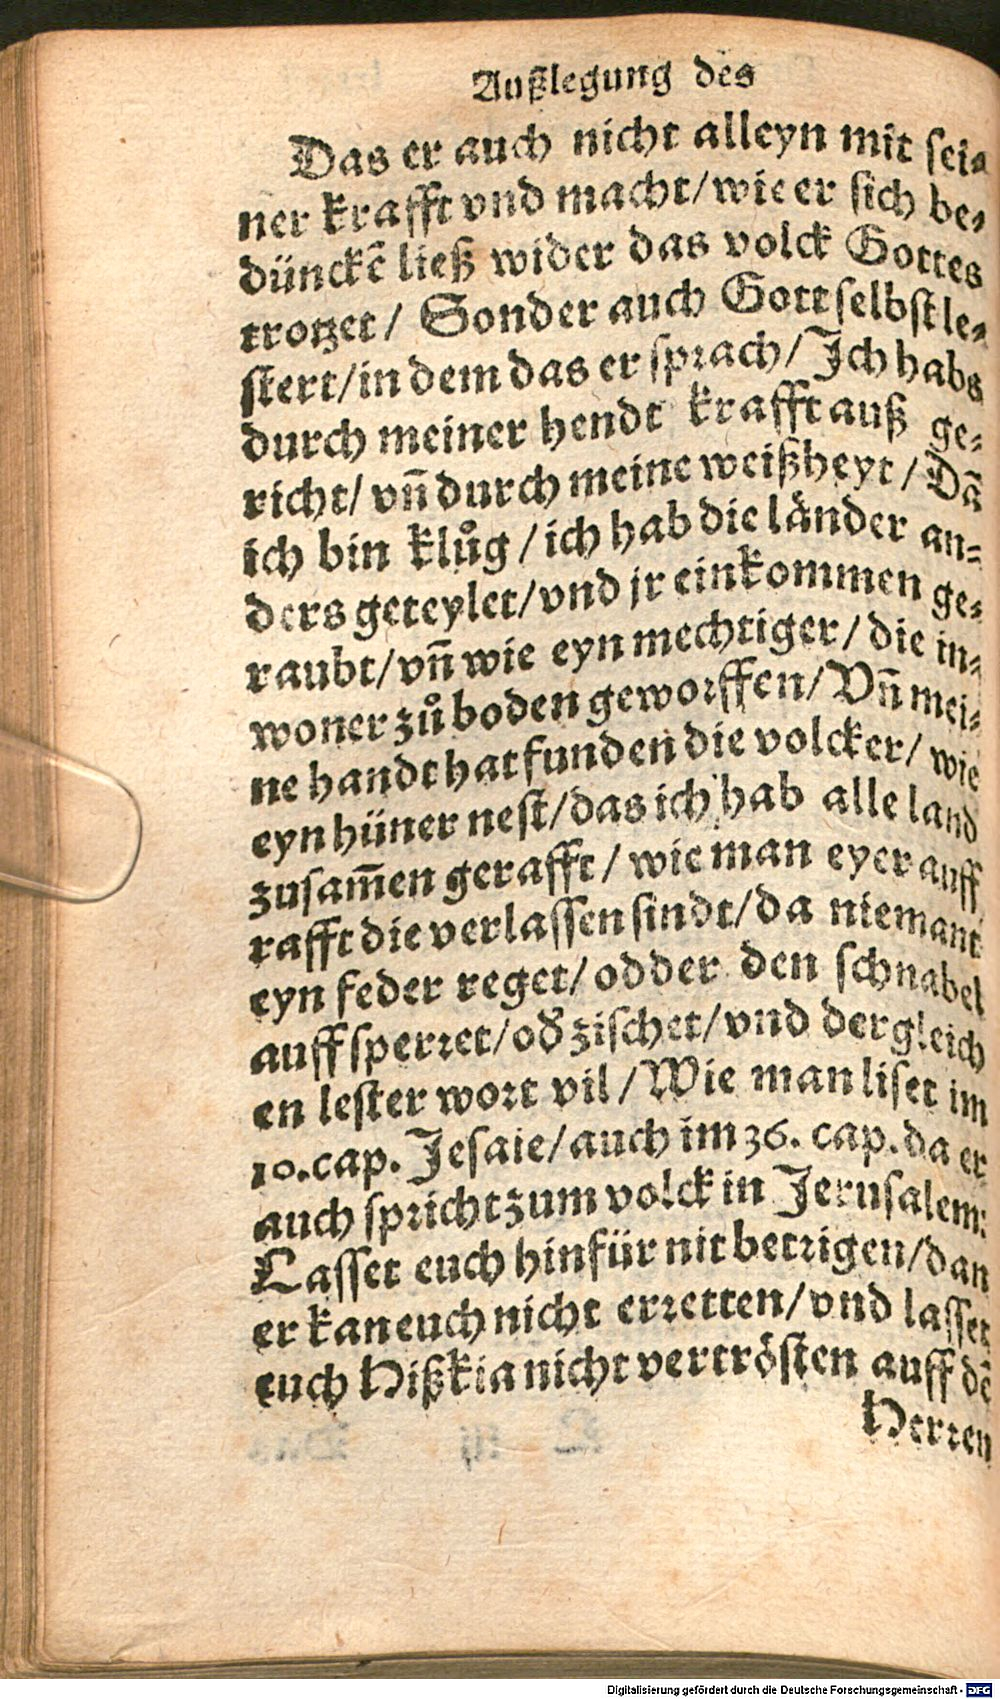 Außlegung des
Das er auch nicht alleyn mit sei⸗
ner krafft vnd macht/ wie er sich be⸗
dünckē ließ wider das volck Gottes
trotzet/ Sonder auch Gott selbst le⸗
stert/ in dem das er sprach/ Ich habs
durch meiner hendt krafft auß ge⸗
richt/ vñ durch meine weißheyt/ Dā
ich bin klůg/ ich hab die länder an⸗
ders geteylet/ vnd jr einkommen ge⸗
raubt/ vñ wie eyn mechtiger/ die in⸗
woner zů boden geworffen/ Vñ mei⸗
ne handt hat funden die volcker/ wie
eyn hüner nest/ das ich hab alle land
zusam̄en gerafft/ wie man eyer auff
rafft die verlassen sindt/ da niemant
eyn feder reget/ odder den schnabel
auffsperret/ od̕ zischet/ vnd dergleich
en lester wort vil/ Wie man liset im
10. cap. Jesaie/ auch im 36. cap. da er
auch spricht zum volck in Jerusalem:
Lasset euch hinfür nit betrigen/ dan
er kan euch nicht erretten/ vnd lasset
euch Hißkia nicht vertrösten auff dē
Herren
Digitalisierung gefördert durch die Deutsche Forschungsgemeinschaft - DFG